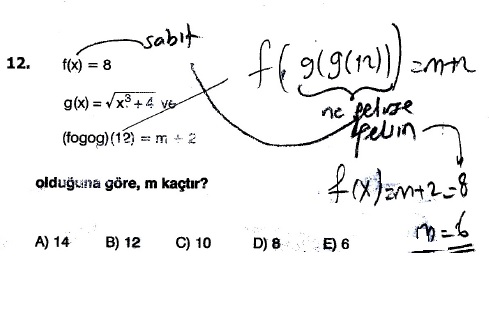 sabit
12. f(x) = 8
g(x) = √x³ + 4 ve
(fogog)(12) = m + 2
olduğuna göre, m kaçtır?
A) 14 B) 12 C) 10 D) 8 E) 6
f(g(g(12))) = m+2
ne gelirse
gelsin
f(x) = m+2 = 8
m = 6